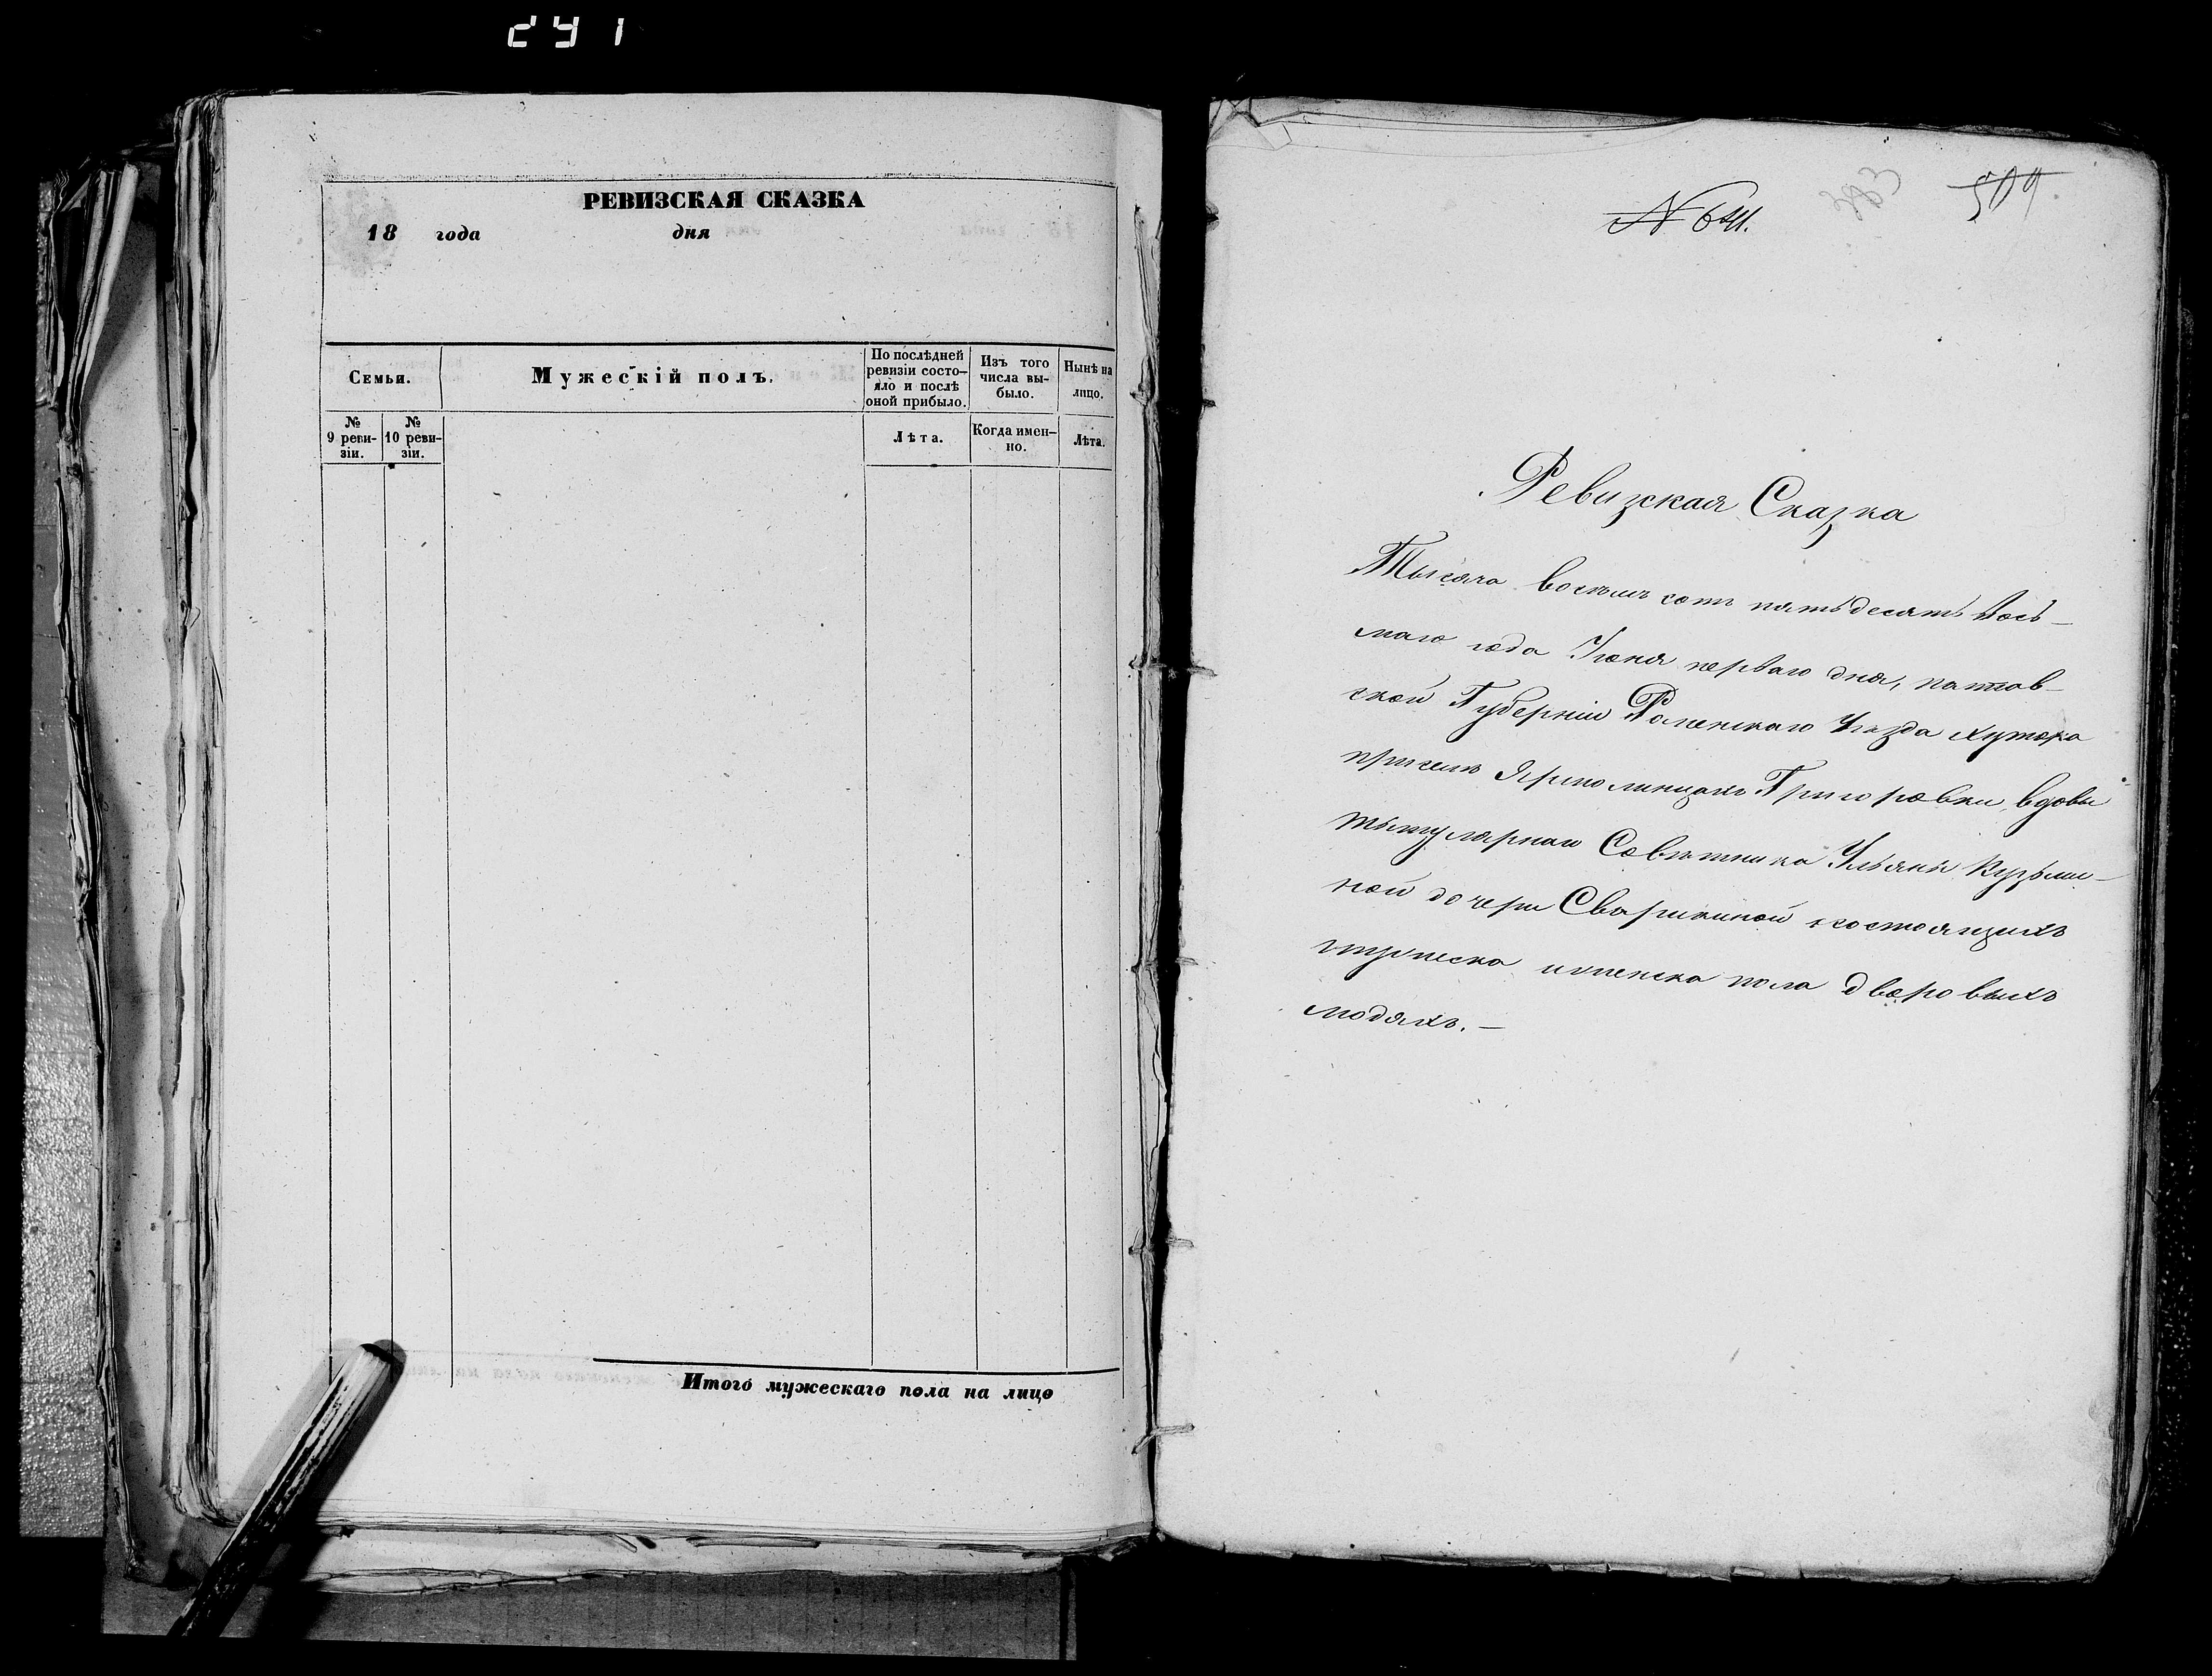 291
РЕВИЗСКАЯ СКАЗКА
18 года дня
Семьи.
Мужескій полъ.
По послѣдней ревизіи состо-
яло и послѣ
оной прибыло.
Изъ того
числа вы-
было.
Нынѣ на
лицо.
№
9 реви-
зіи.
№
10 реви-
зіи.
Лѣта.
Когда имен-
но.
Лѣта.
Итого мужескаго пола на лицо
№ 641.
383
509
Ревизская Сказка
Тысяча восемь сотъ пятьдесятъ вось-
маго года Июня перваго дня, полтав-
ской Губерніи Роменскаго Уѣзда хутора
при селѣ Ярмолинцахъ Григоровки, вдовы
титулярнаго Совѣтника Ульяны Кузьми-
ной дочери състоящихъ
мужеска и женска пола дворовыхъ
людяхъ. —